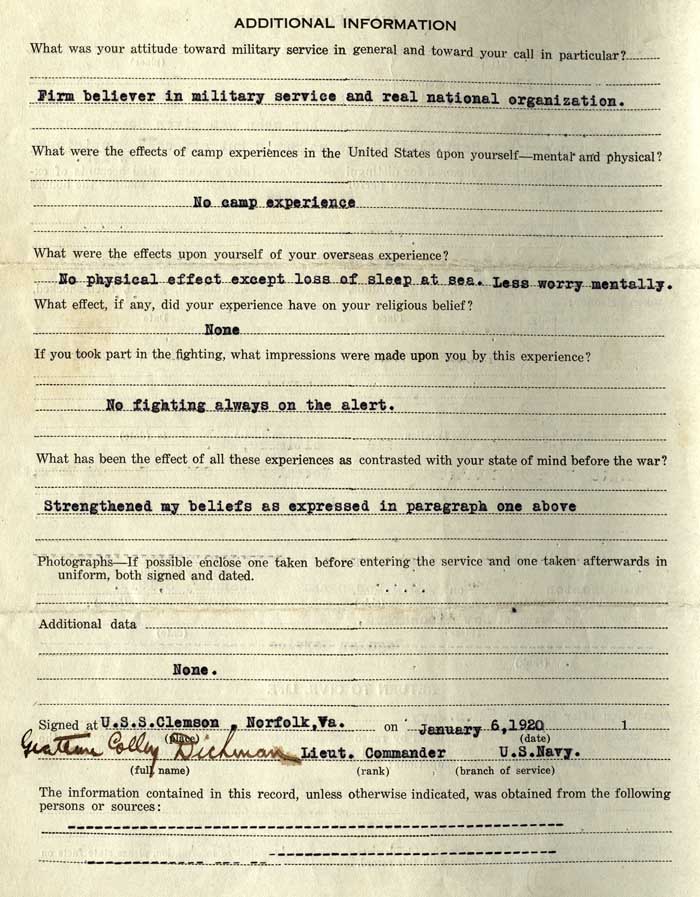 ADDITIONAL INFORMATION
What was your attitude toward military service in general and toward your call in particular?
Firm believer in military service and real national organization.
What were the effects of camp experiences in the United States upon yourself—mental and physical?
No camp experience
What were the effects upon yourself of your overseas experience?
No physical effect except loss of sleep at sea. Less worry mentally.
What effect, if any, did your experience have on your religious belief?
None
If you took part in the fighting, what impressions were made upon you by this experience?
No fighting always on the alert.
What has been the effect of all these experiences as contrasted with your state of mind before the war?
Strengthened my beliefs as expressed in paragraph one above
Photographs—If possible enclose one taken before entering the service and one taken afterwards in
uniform, both signed and dated.
Additional data
None.
Signed at U.S.S.Clemson , Norfolk,Va. on January 6,1920 1
(place) (date)
Colley Dichman Lieut. Commander U.S.Navy.
(full name) (rank) (branch of service)
The information contained in this record, unless otherwise indicated, was obtained from the following
persons or sources: